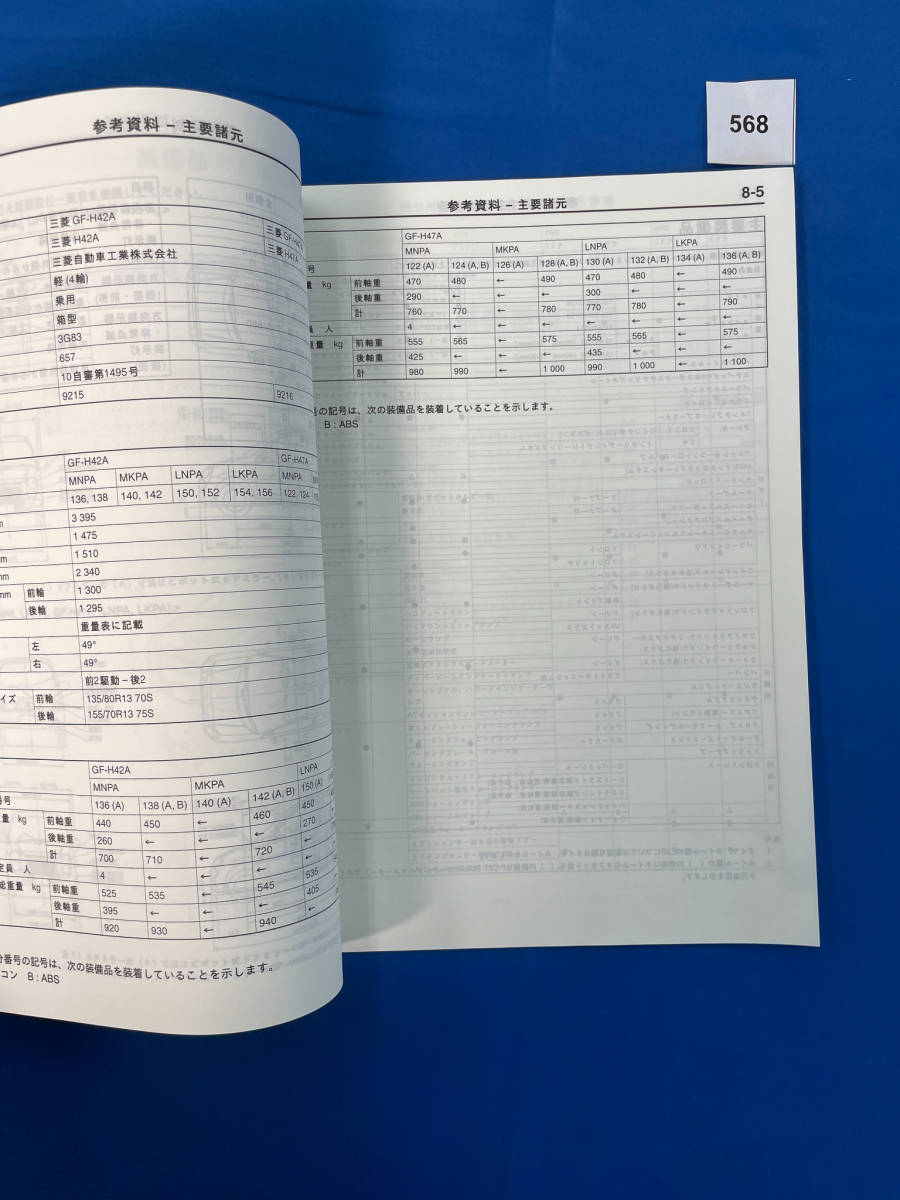 568
参考資料 – 主要諸元
三菱 GF-H42A
三菱 H42A
三菱 H47A
三菱自動車工業株式会社
軽 (4輪)
乗用
箱型
3G83
657
10自審第1495号
9215 9216
GF-H42A GF-H47A
MNPA MKPA LNPA LKPA MNPA
136, 138 140, 142 150, 152 154, 156 122, 124
3 395
1 475
mm 1 510
mm 2 340
mm 前輪 1 300
後輪 1 295
重量表に記載
左 49°
右 49°
前2駆動－後2
イズ 前輪 135/80R13 70S
後輪 155/70R13 75S
GF-H42A
MNPA MKPA LNPA
番号 136 (A) 138 (A, B) 140 (A) 142 (A, B) 150 (A)
量 kg 前軸重 440 450 ← 460 450
後軸重 260 ← ← ← 270
計 700 710 ← 720
定員 人 4 ← ← ←
総重量 kg 前軸重 525 535 ← 545 535
後軸重 395 ← ← ← 405
計 920 930 ← 940
分番号の記号は、次の装備品を装着していることを示します。
コン B : ABS
8-5
参考資料 – 主要諸元
GF-H47A
MNPA MKPA LNPA LKPA
号 122 (A) 124 (A, B) 126 (A) 128 (A, B) 130 (A) 132 (A, B) 134 (A) 136 (A, B)
量 kg 前軸重 470 480 ← 490 470 480 ← 490
後軸重 290 ← ← ← 300 ← ← ←
計 760 770 ← 780 770 780 ← 790
員 人 4 ← ← ← ← ← ← ←
重量 kg 前軸重 555 565 ← 575 555 565 ← 575
後軸重 425 ← ← ← 435 ← ← ←
計 980 990 ← 1 000 990 1 000 ← 1 100
号の記号は、次の装備品を装着していることを示します。
B : ABS